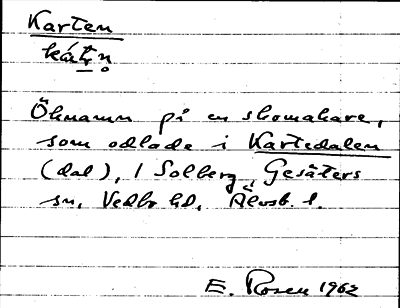 Karten
kát̠n̥
Öknamn på en skomakare,
som odlade i Kartedalen
(dal), 1 Solberg, Gesäters
sn, Vedbo hd, Älvsb. l.
E. Rosen 1962